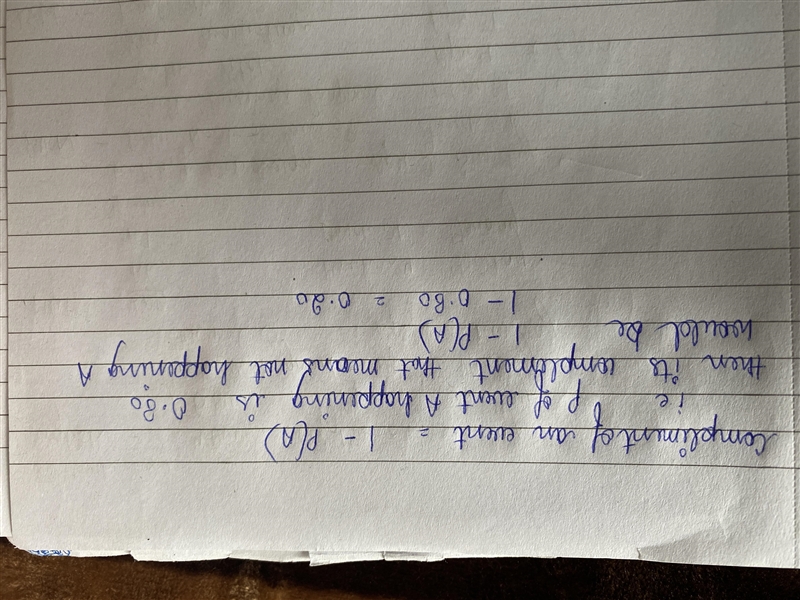 Compliment of an event = 1 - P(A)
ie P of event A happening is 0.80
then its complement that means not happening A
would be 1 - P(A)
1 - 0.80 = 0.20